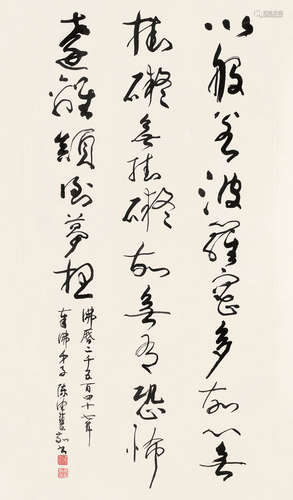 以般若波羅蜜多故心無
挂礙無挂礙故無有恐怖
遠離顛倒夢想
佛曆二千五百四十七年
奉佛弟子陳